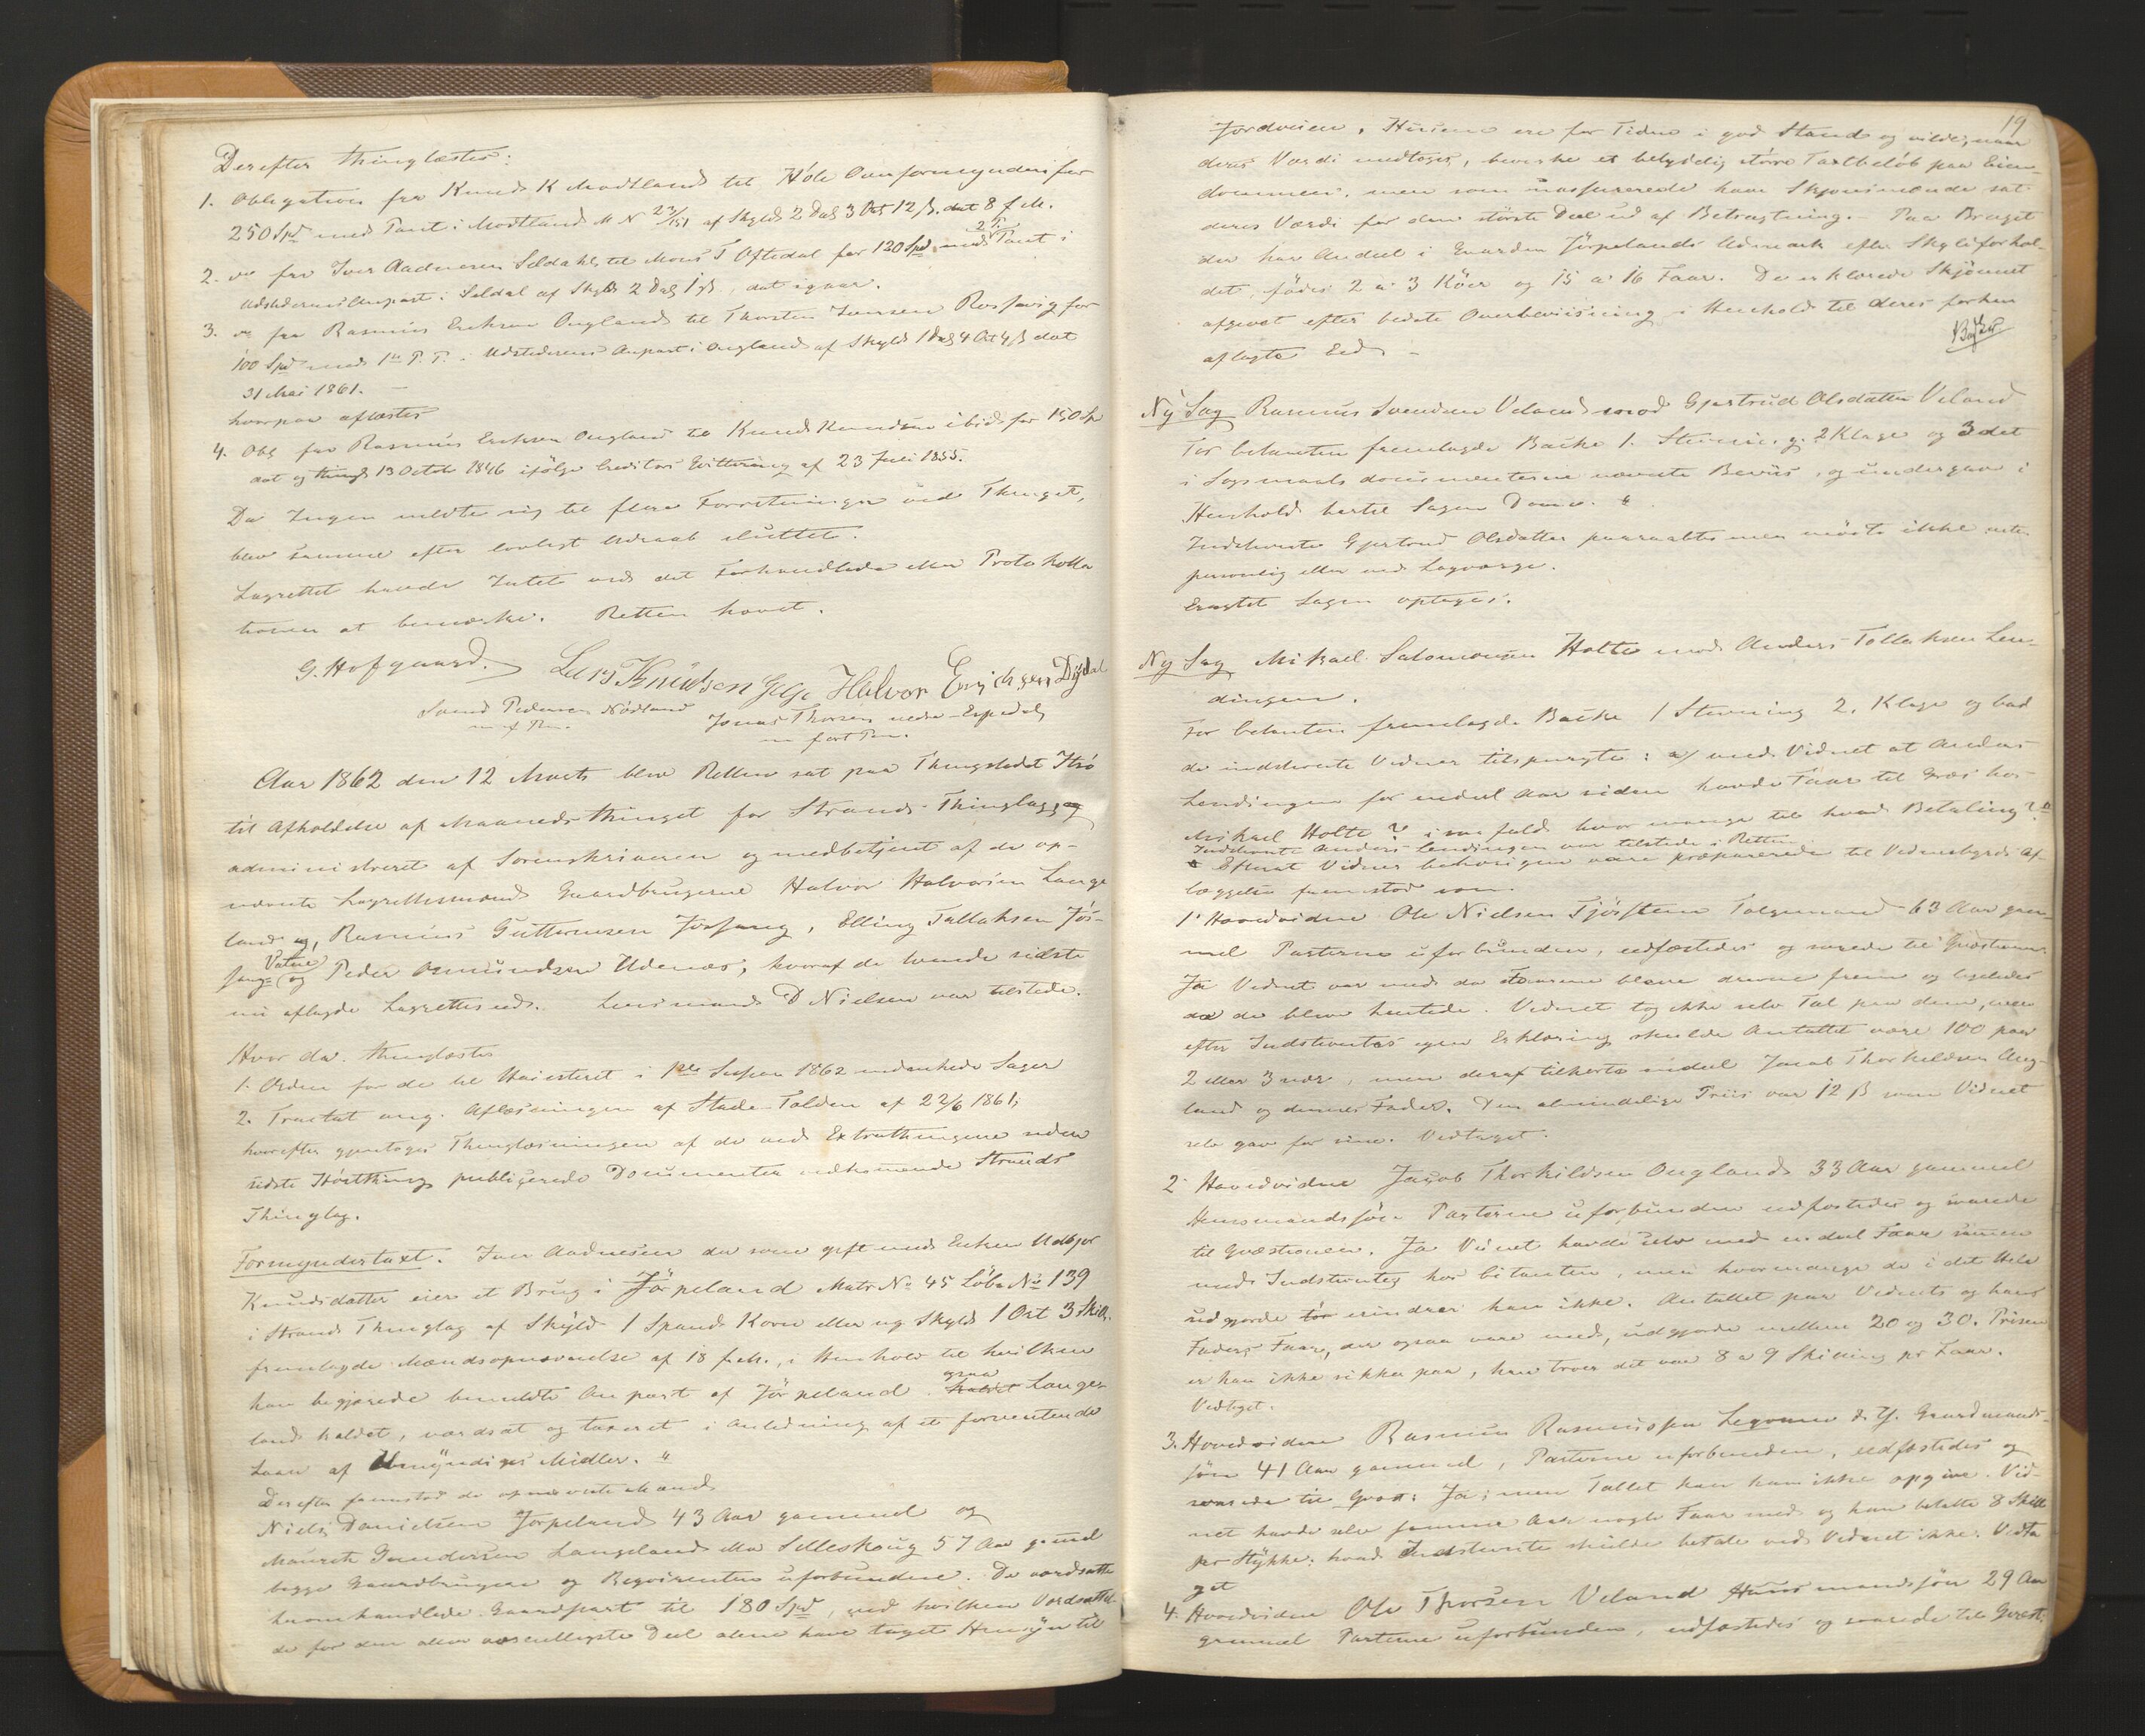 Derefter thinglæstes:
1. Obligation fra Knud K Modtland til Höle Overformynderi for
250 Spd med Pant i Modtland M N 23/151 af Skyld 2 Dal 3 Ort 12 β. dat 8 f. M.
2. do fra Iver Aadnesen Seldahl til Mons T Oftedal for 120 Spd med 2 P. Pant i
Udstederens Anpart i Seldal af Skyld 2 Dal 1 β, dat igaar.
3. do fra Rasmus Eriksen Ougland til Thorsten Iversen Rossavig for
100 Spd med 1ste P. P. i Udstederens Anpart i Ougland af Skyld 1 Dal 4 Ort 4 β dat
31 Mai 1861. —
hvorpaa aflæstes
4. Obl fra Rasmus Eriksen Ougland til Knud Knudsen ibid. for 150 Sp
dat og thingl 13 Octob 1846 ifölge Creditors Qvittering af 23 Juli 1855.
Da Ingen meldte sig til flere Forretninger ved Thinget,
blev samme efter lovligt Udraab sluttet.
Lagrettet havde Intet ved det Forhandlede eller Protokolla
tionen at bemærke. Retten hævet.
G. Hofgaard. Lars Knudsen Gilje Halvor Erichsen Dysdal
Svend Pedersen Nödland Jonas Thorsen nedre Espedal
m. f. Pen. m fört Pen.
Aar 1862 den 12 Marts blev Retten sat paa Thingstedet Idsö
til Afholdelse af Maanedsthinget for Strands Thinglag og
administreret af Sorenskriveren og medbetjent af de op-
nævnte Lagrettesmænd Gaardbrugerne Halvor Halvorsen Lange
land og, Rasmus Guttormsen Jösang, Elling Tallaksen Jös-
sang Vatne og Peder Osmundsen Udenæs, hvoraf de tvende sidste
nu aflagde Lagrettesed. Lensmand D Nielsen var tilstede.
Hvor da thinglæstes
1. Orden for de til Høiesteret i 1ste Session 1862 indankede Sager
2. Tractat ang. Aflösningen af Stade-Tolden af 22/6 1861,
hvorefter gjentoges Thinglæsningen af de ved Extrathingene siden
sidste Höstthing publicerede Documenter vedkommende Strands
Thinglag.
Formyndertaxt. Iver Aadnesen da som gift med Enken Malgor
Knudsdatter eier et Brug i Jörpeland Matr No 45 Löbe No 139
i Strands Thinglag af Skyld 1 Spand Korn eller ny Skyld 1 Ort 3 Skill,
fremlagde Mændsopnævnelse af 18 f. M., i Henhold til hvilken
han begjærede bemeldte Anpart af Jörpeland graa Lange-
land kaldet, værdsat og taxeret i Anledning af et forventende
Laan af Umyndiges Midler. "
Derefter fremstod de opnævnte Mænd
Niels Danielsen Jörpeland 43 Aar gammel og
Mauritz Gundersen Langeland eller Selleskoug 57 Aar gamel
begge Gaardbrugere og Reqvirenten uforbundne. De værdsatte
heromhandlede Gaardpart til 180 Spd, ved hvilken Værdsættel-
de for den allervæsentligste Deel alene have taget Hensyn til
19
Jordveien. Husene ere for Tiden i god Stand og vilde, naar
deres Værdi medtoges, bevirke et betydelig större Taxtbelöb paa Eien-
dommen, men som uassurerede have Skjönsmændene sat
deres Værdi for den störste Deel ud af Betragtning. — Paa Bruget
der har Andeel i Gaarden Jörpelands Udmark efter Skyldforhol-
det, födes 2 a 3 Köer og 15 a 16 Faar. De erklærede Skjönnet
afgivet efter bedste Overbeviisning i Henhold til deres forhen
aflagte Eed. —
Ny Sag Rasmus Svendsen Veland mod Gjertrud Olsdatter Veland
For Citanten fremlagde Bache 1. Stevning, 2 Klage og 3 det
i Sogsmaalsdocumenterne nævnte Beviis, og undergav i
Henhold hertil Sagen Dom. "
Indstevnte Gjertrud Olsdatter paaraabtes men mödte ikke enten
personlig eller ved Lagværge.
Eragtet Sagen optages.
Ny Sag Mikael Salomonsen Holte mod Anders Tollaksen Len-
dingen.
For Citanten fremlagde Bache 1 Stevning 2. Klage og bad
de indstevnte Vidner tilspurgte: a/ med Vidnet at Anders
Lendingen for endeel Aar siden havde Faar til Græs hos
Mikael Holte? i saa fald hvor mange til hvad Betaling? "
Indstevnte Anders Lendingen var tilstede i Retten.
Efterat Vidner behörigen vare præparerede til Vidnesbyrds Af-
læggelse fremstod som
1. Hovedvidne Ole Nielsen Tjösteim Tolgemand 63 Aar gam-
mel Parterne uforbunden, edfæstedes og svarede til Qvæstionen:
Ja Vidnet var med da Faarene bleve drevne frem og ligeledes
da de bleve hentede. Vidnet tog ikke selv Tal paa dem, men
efter Indstevntes egen Erklæring skulde Antallet være 100 paa
2 eller 3 nær, men deraf tilhörte endeel Jacob Thorkildsen Oug-
land og dennes Fader. Den almindelige Priis var 12 β som Vidnet
selv gav for sine. Vedtaget.
2 Hovedvidne Jacob Thorkildsen Ougland 33 Aar gammel
Huusmandssön Parterne uforbunden edfæstedes og svarede
til Qvæstionen. Ja Vidnet havde selv med endeel Faar sammen
med Indstevnte hos Citanten, men hvormange de i det Hele
udgjorde erindrer han ikke. Antallet paa Vidnets og hans
Faders Faar, der ogsaa vare med, udgjorde mellem 20 og 30. Prisen
er han ikke sikker paa, han troer det var 8 a 9 Skilling pr Faar.
Vedtaget.
3. Hovedvidne Rasmus Rasmussen Gaardmands-
sön 41 Aar gammel, Parterne uforbunden, edfæstedes og
svarede til Qvæst: Ja; men Tallet kan han ikke opgive. Vid-
net havde selv samme Aar nogle Faar med og han betalte 8 Skill
pr Stykke; hvad Indstevnte skulde betale ved Vidnet ikke. Vedta
get
4. Hovedvidne Ole Thorsen Veland Huusmandssön 29 Aar
gammel Parterne uforbunden, edfæstedes og svarede til Qvæst: